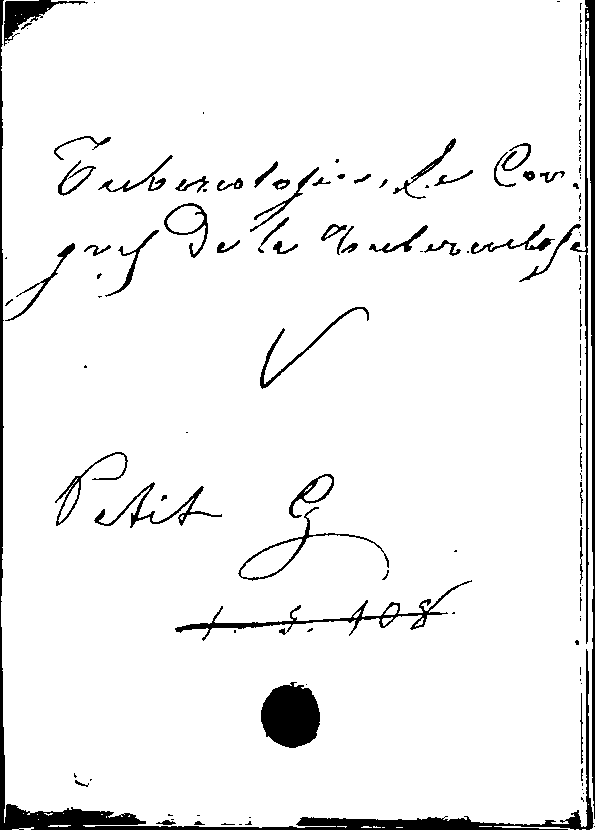 Tuberculosis, Le Con-
grès de la tuberculose
V
Petit G
1. 5. 108